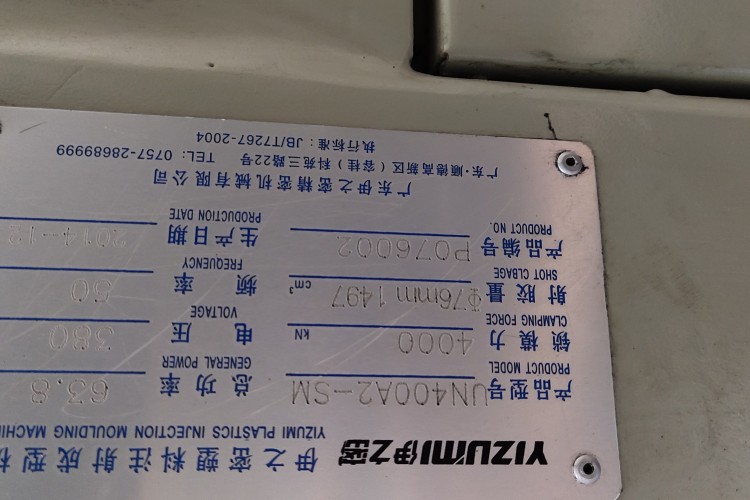 YIZUMI伊之密 伊之密塑料注射成型机
YIZUMI PLASTICS INJECTION MOULDING MACHIN
产品型号 UN400A2-SM 总功率 63.8
PRODUCT MODEL GENERAL POWER
锁模力 4000 kN 电压 380
CLAMPING FORCE VOLTAGE
射胶量 Φ76mm 1497 cm³ 频率 50
SHOT CLBAGE FREQUENCY
产品编号 P076002 生产日期 2014-12
PRODUCT NO. PRODUCTION DATE
广东伊之密精密机械有限公司
广东·顺德高新区(容桂)科苑三路22号 TEL: 0757-28689999
执行标准:JB/T7267-2004